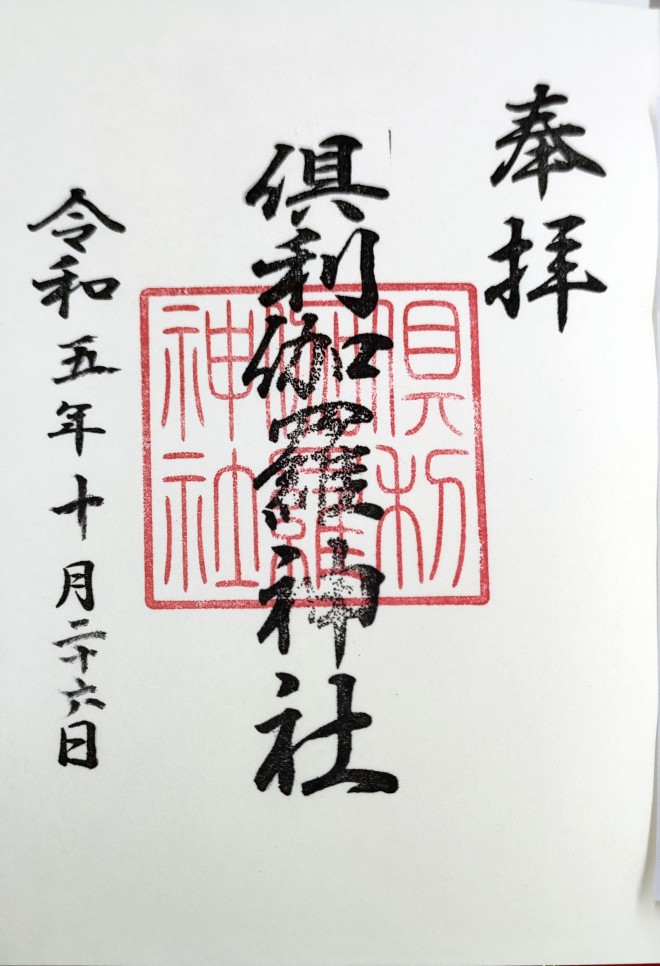 奉拝
倶利伽羅神社
倶利
伽羅
神社
令和五年十月二十六日